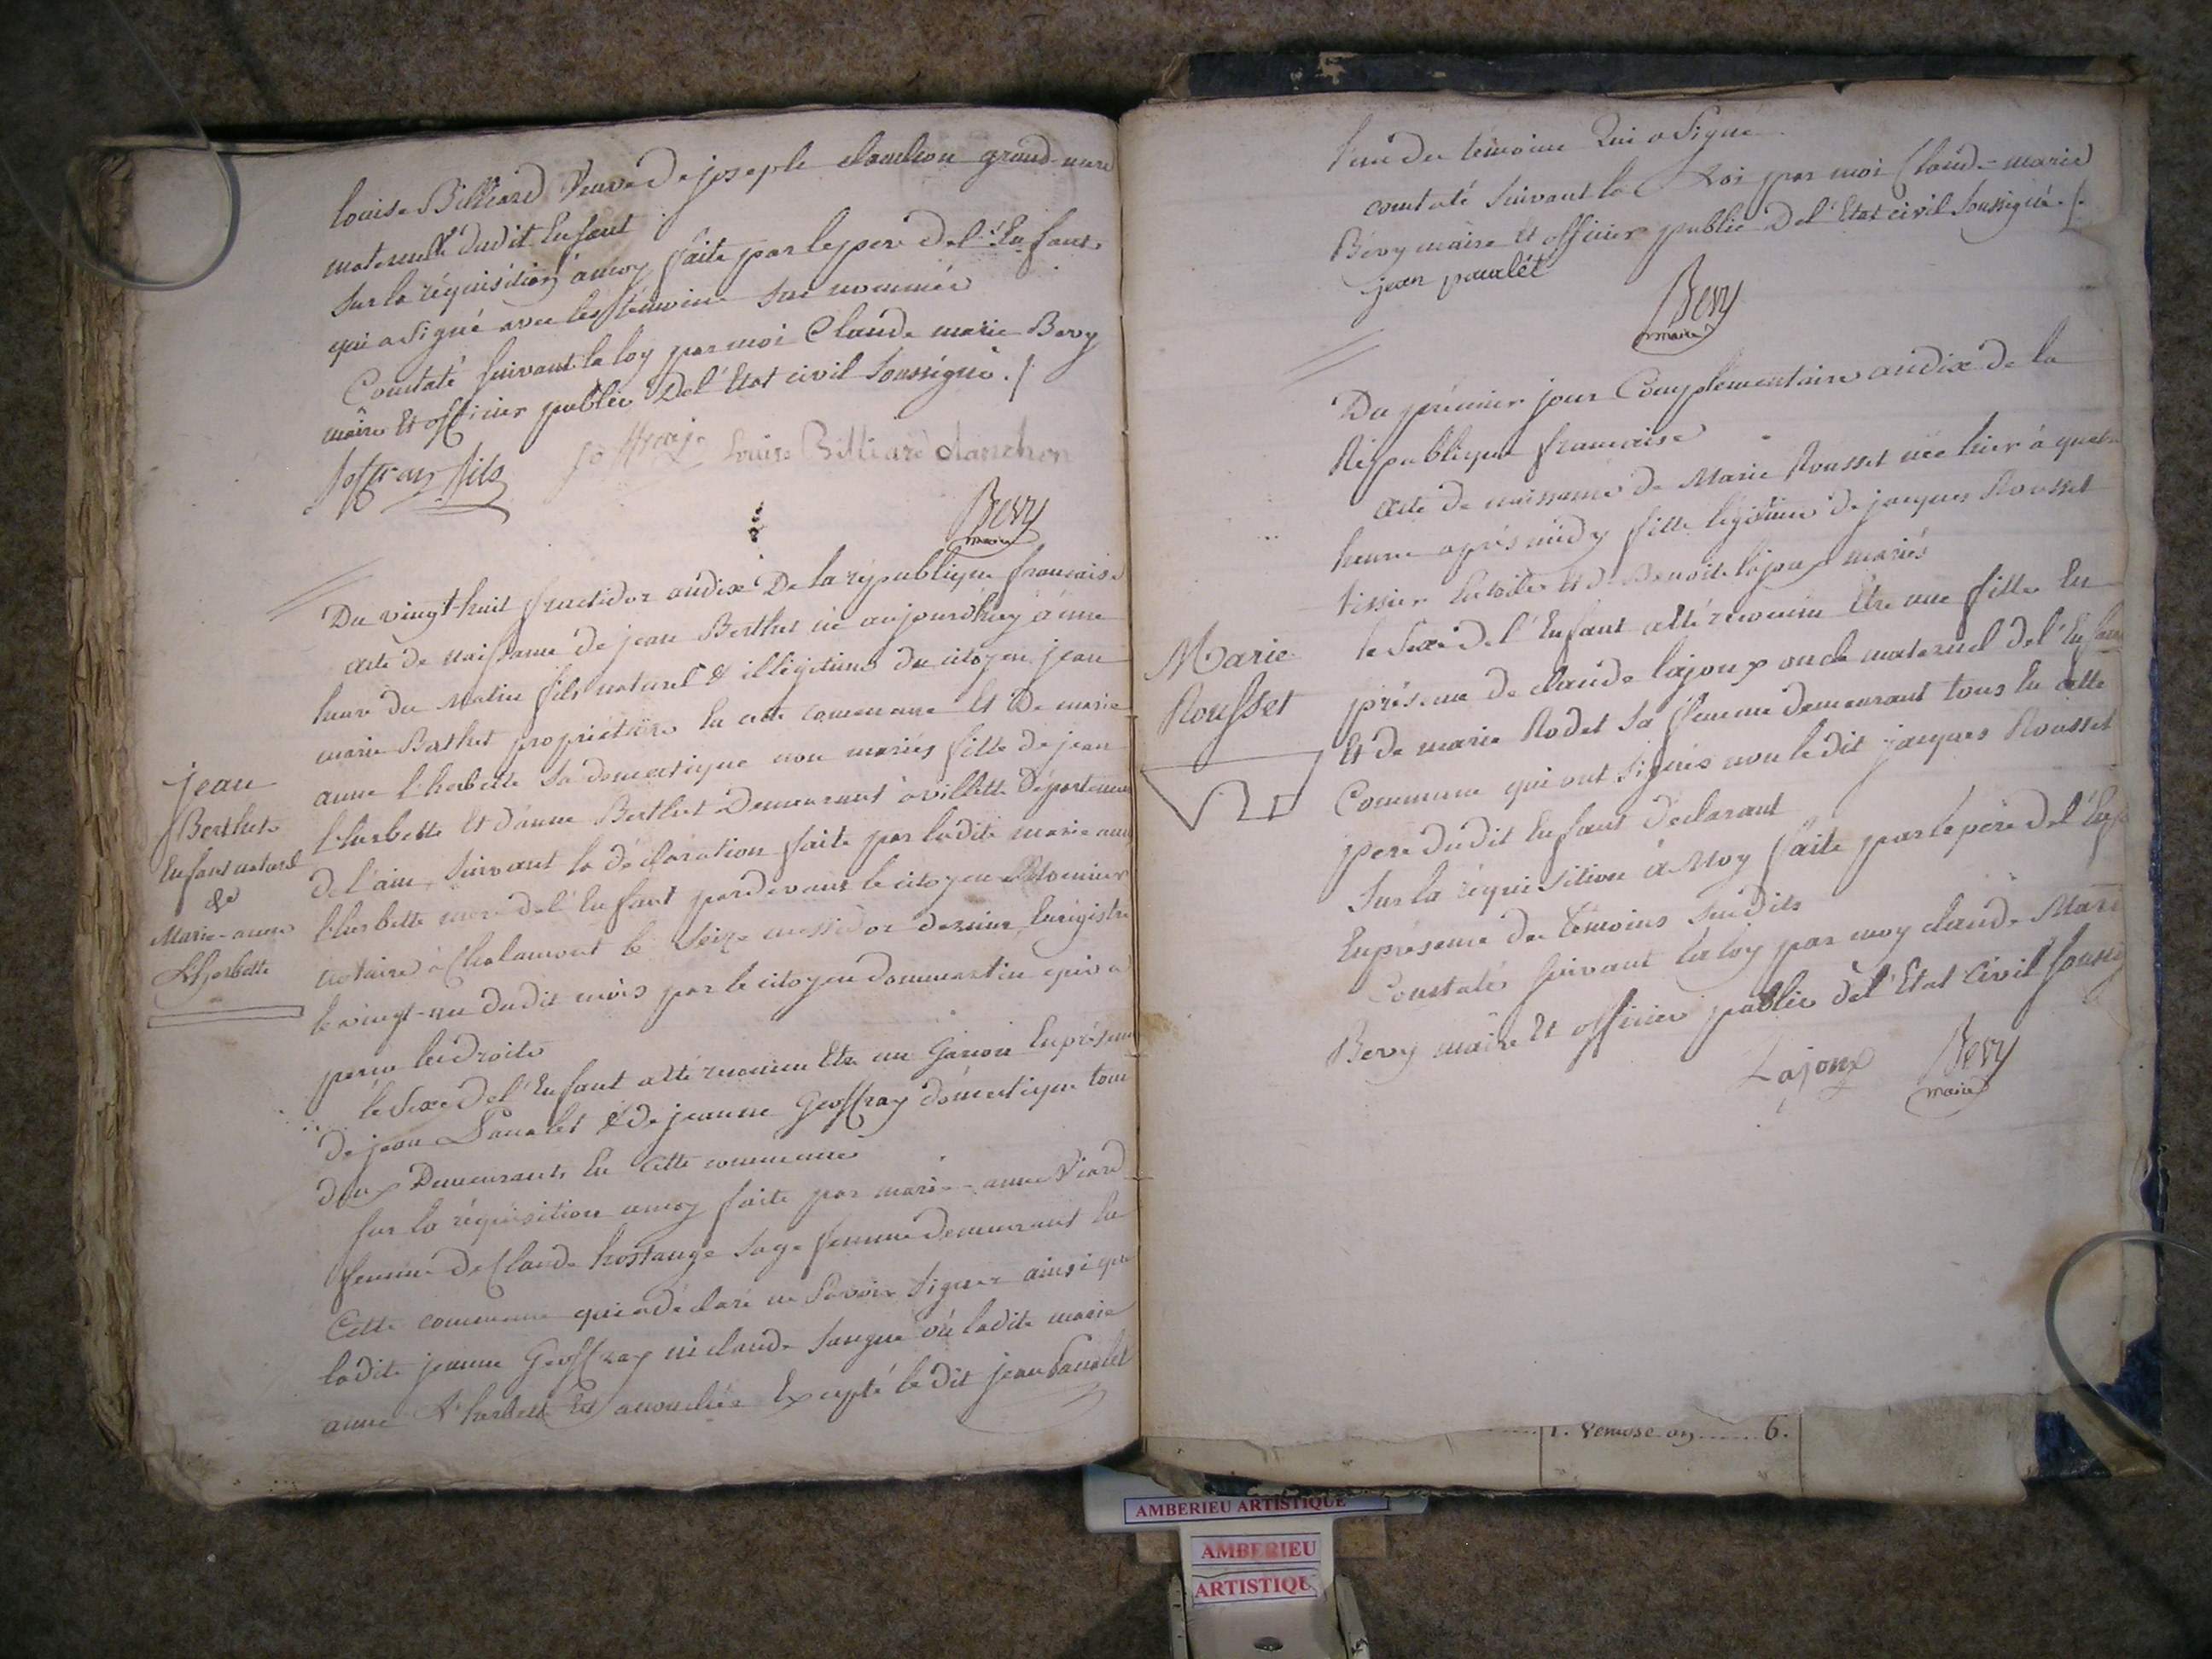 louise Billiard Veuve de joseph clanchon grand-mere
maternelle dudit Enfant
sur la réquisition a moy faite par le pere de l'Enfant
qui a signé avec les témoins sus nommés
Constaté suivant la loy par moi Claude marie Bevy
maire et officier public De l'Etat civil soussigné ./.
fils
Louise Billiard clanchon
Bevy
maire
Du vingt-huit fructidor an dix De la république francaise
acte de naissance de jean Berthet né aujourd'huy à une
heure du Matin fils naturel & illégitime du citoyen jean
marie Berthet propriétaire en cette commune Et De marie
anne l'herbette sa domestique non mariés fille de jean
l'herbette Et d'anne Berthet Demeurant à villette Département
de l'ain, suivant la déclaration faite par ladite marie anne
l'herbette mere de l'Enfant pardevant le citoyen
notaire à Chalamont le seize messidor dernier, Enregistré
le vingt-un dudit mois par le citoyen dommartin qui a
perçu les droits
jean
Berthet
Enfant naturel
de
Marie-anne
L'herbette
le sexe de l'Enfant a été reconnu Etre un Garçon En présence
de jean Panalet & de jeanne Geoffray domestique tous
deux Demeurants En cette commune
sur la réquisition a moy faite par marie-anne
femme de Claude hostange sage femme demeurant En
Cette commune qui a déclaré ne savoir signer ainsi que
ladite jeanne Geoffray ni claude où ladite marie
anne L'herbette Est accouchée Excepté le dit jean Panalet
l'un des témoins Qui a signé
constaté suivant la Loi par moi Claude-marie
Bevy maire Et officier public De l'Etat civil soussigné ./.
jean panalet
Bevy
maire
Du prémier jour Complémentaire an dix de la
République francaise
acte de naissance de Marie Rousset née hier à quatre
heures après midy fille légitime de jacques Rousset
tissier En toile Et de Benoite lajoux mariés
le sexe de l'Enfant a été reconnu Etre une fille En
présence de claude lajoux oncle maternel de l'Enfant
Et de marie Rodet sa femme demeurant tous En cette
Commune qui ont signés non le dit jacques Rousset
pere dudit Enfant déclarant
Marie
Rousset
Sur la réquisition à Moy faite par le pére de l'Enf
En présence des témoins susdits
Constaté suivant la loy par moy claude Marie
Bevy maire Et officier public de l'Etat Civil soussig
Lajoux
Bevy
maire
1. Ventose an 6.
AMBERIEU ARTISTIQUE
AMBERIEU
ARTISTIQU